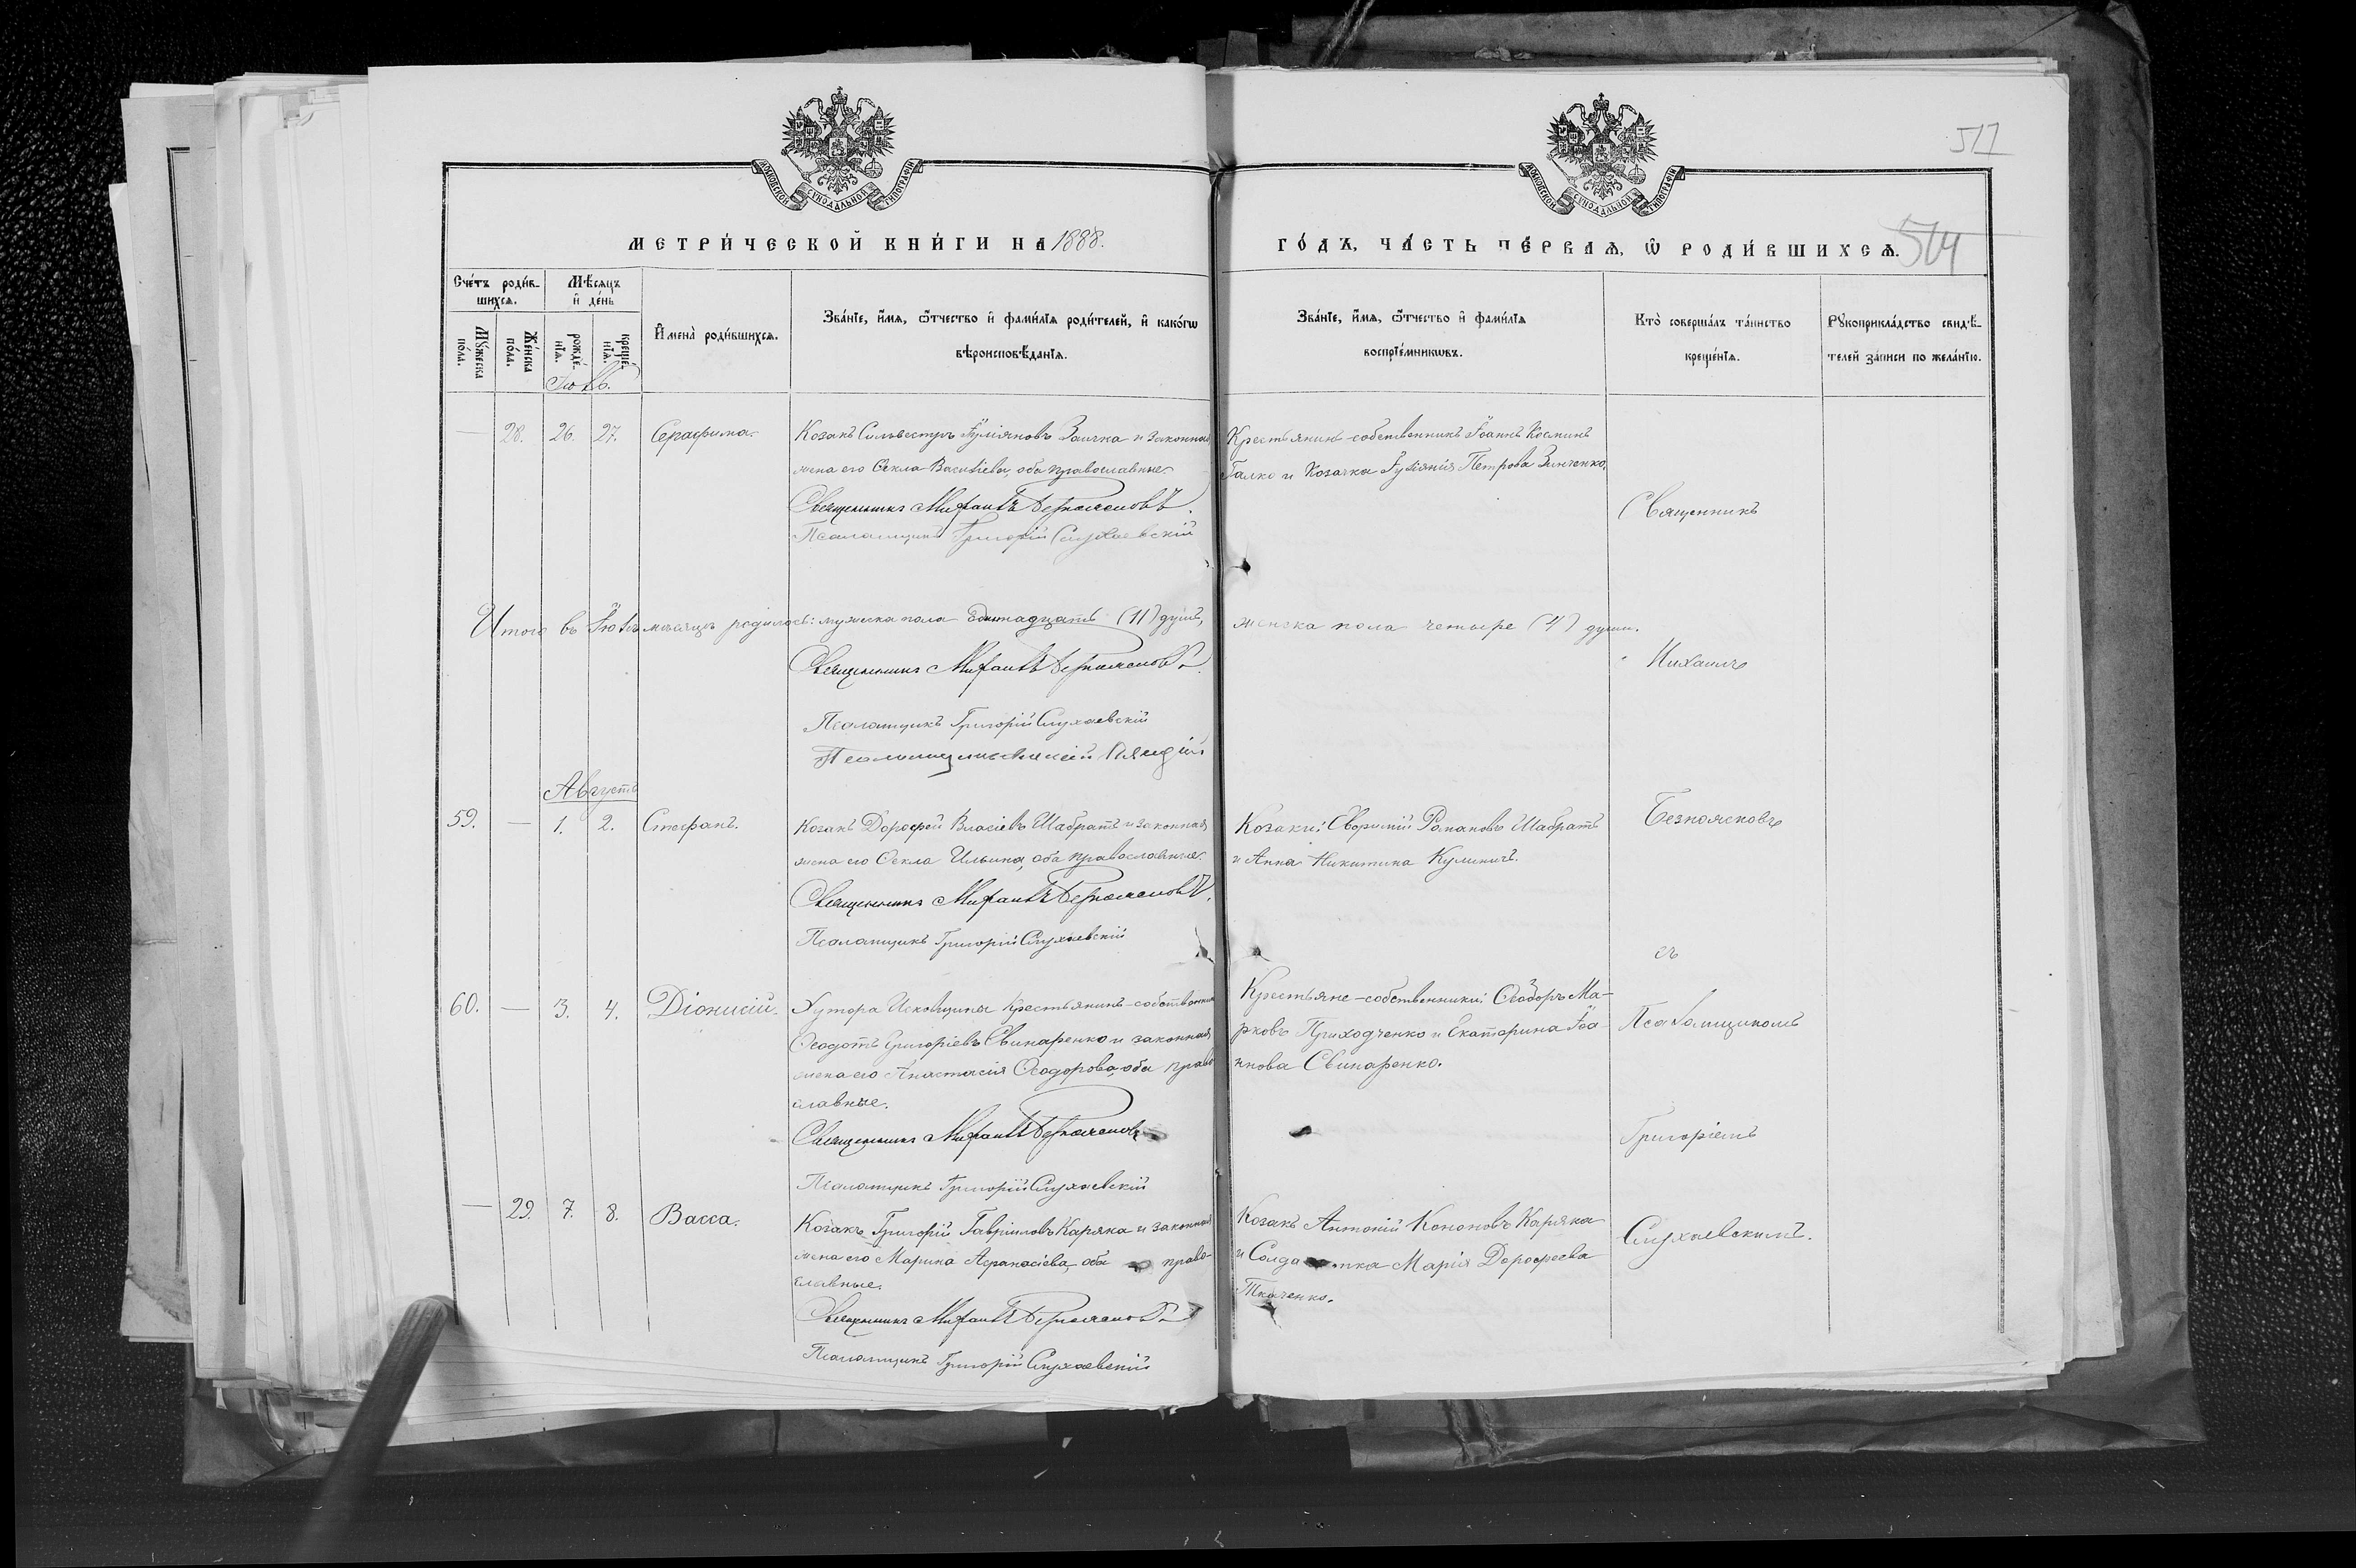 517
МОСКОВСКОЙ СѴНОДАЛЬНОЙ ТИПОГРАФІИ
МОСКОВСКОЙ СѴНОДАЛЬНОЙ ТИПОГРАФІИ
МЕТРИ́ЧЕСКОЙ КНИ́ГИ НА 1888.
ГО́ДЪ, ЧА́СТЬ ПЕ́РВАѦ, Ѡ РОДИ́ВШИХСѦ.
514
Сче́тъ роди́в-
шихсѧ.
Мꙋ́жеска
по́ла.
Же́нска
по́ла.
Мѣ́сѧцъ
и҆ де́нь
рожде́-
нїѧ.
креще́-
нїѧ.
И҆мена̀ роди́вшихсѧ.
Зва́нїе, и҆́мѧ, ѻ҆́тчество и҆ фами́лїѧ роди́телей, и҆ како́гѡ
вѣроисповѣ́данїѧ.
Зва́нїе, и҆́мѧ, ѻ҆́тчество и҆ фами́лїѧ
воспрїе́мникѡвъ.
Кто̀ соверша́лъ та́инство
креще́нїѧ.
Рꙋкоприкла́дство свидѣ́-
телей за́писи по жела́нїю.
Іюль.
— 28. 26. 27. Серафима.
Козакъ Сильвестръ Іуліяновъ Заичка и законная
жена его Ѳекла Васильева, оба православные.
Священникъ Михаилъ Безпоясковъ.
Псаломщикъ Григорій Слухаевскій
Крестьянинъ-собственникъ Іоаннъ Косминъ
Галко и Козачка Іуліянія Петрова Зинченко.
Итого въ Іюлѣ мѣсяцѣ родилось: мужеска пола одинадцать (11) душъ,
женска пола четыре (4) души.
Священникъ Михаилъ Безпоясковъ.
Псаломщикъ Григорій Слухаевскій
Августъ
59. — 1. 2. Стефанъ.
Козакъ Дороѳей Власіевъ Шабратъ и законная
жена его Ѳекла Ильина, оба православные.
Священникъ Михаилъ Безпоясковъ.
Псаломщикъ Григорій Слухаевскій
Козаки: Евѳимій Романовъ Шабратъ
и Анна Никитина Кулиничъ.
60. — 3. 4. Діонисій.
Хутора Исковщины крестьянинъ-собственникъ
Ѳеодотъ Григоріевъ Свинаренко и законная
жена его Анастасія Ѳеодорова, оба право
славные.
Священникъ Михаилъ Безпоясковъ
Псаломщикъ Григорій Слухаевскій
Крестьяне-собственники: Ѳеодоръ Ма-
рковъ Приходченко и Екатерина Іоа-
ннова Свинаренко.
— 29. 7. 8. Васса.
Козакъ Григорій Гавріиловъ Каряка и законная
жена его Марина Аѳанасіева, оба право-
славные.
Священникъ Михаилъ Безпоясковъ
Псаломщикъ Григорій Слухаевскій
Козакъ Антоній Кононовъ Каряка
и Солдатка Марія Дороѳеева
Ткаченко.
Священникъ
Михаилъ
Безпоясковъ
съ
Псаломщикомъ
Григоріемъ
Слухаевскимъ.